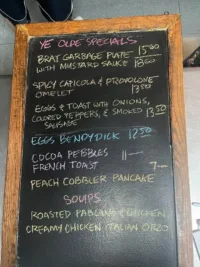 YE OLDE SPECIALS
BRAT GARBAGE PLATE 15⁰⁰
WITH MUSTARD SAUCE
SPICY CAPICOLA & PROVOLONE
OMELET 13⁵⁰
EGGS & TOAST WITH ONIONS,
COLORED PEPPERS, & SMOKED 13⁵⁰
SAUSAGE
EGGS BENDYDICK 12⁵⁰
COCOA PEBBLES 11—
FRENCH TOAST
PEACH COBBLER PANCAKE 7—
SOUPS
ROASTED POBLANO CHICKEN
CREAMY CHICKEN ITALIAN ORZO